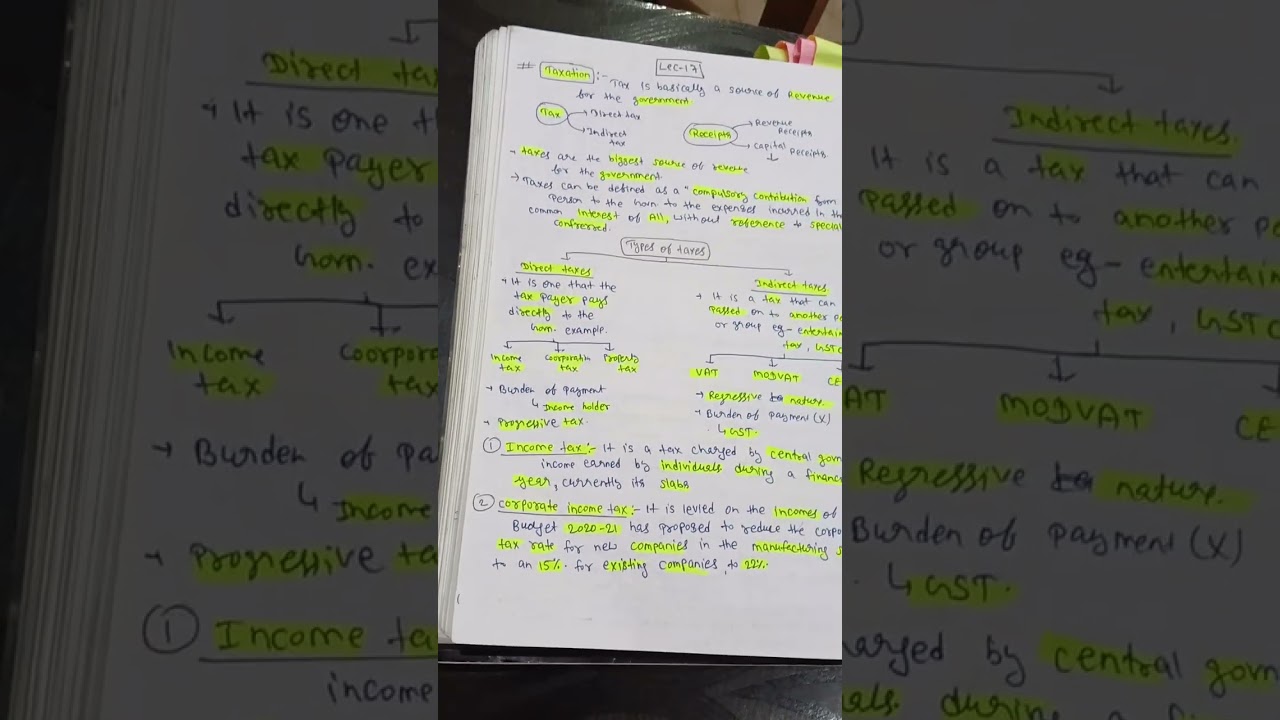 # Taxation :- Lec-17
Tax is basically a source of Revenue
for the government
Tax → Direct tax
→ Indirect
tax
Receipts → Revenue
Receipts
→ Capital Receipts
→ taxes are the biggest source of revenue
for the government
→ Taxes can be defined as a "compulsory contribution from
person to the to the expenses incurred in the
common interest of All, without reference to special
confrered.
Types of taxes
Direct taxes
→ It is one that the
tax payer pays
directly to the
example.
Income
tax
Property
tax
→ Burden of payment
↳ Income holder
→ Progressive tax.
Indirect taxes
→ It is a tax that can
Passed on to another
or group eg- entertain
tax, GST
VAT
MODVAT
CE
→ Regressive nature.
→ Burden of payment (X)
↳ GST.
① Income tax :- It is a tax charged by central
income earned by individuals during a financ
year, currently its slabs
② corporate income tax :- It is levied on the Incomes of
Budget 2020-21 has proposed to reduce the corpo
tax rate for new companies in the manufacturing s
to an 15% for existing companies, to 22%.